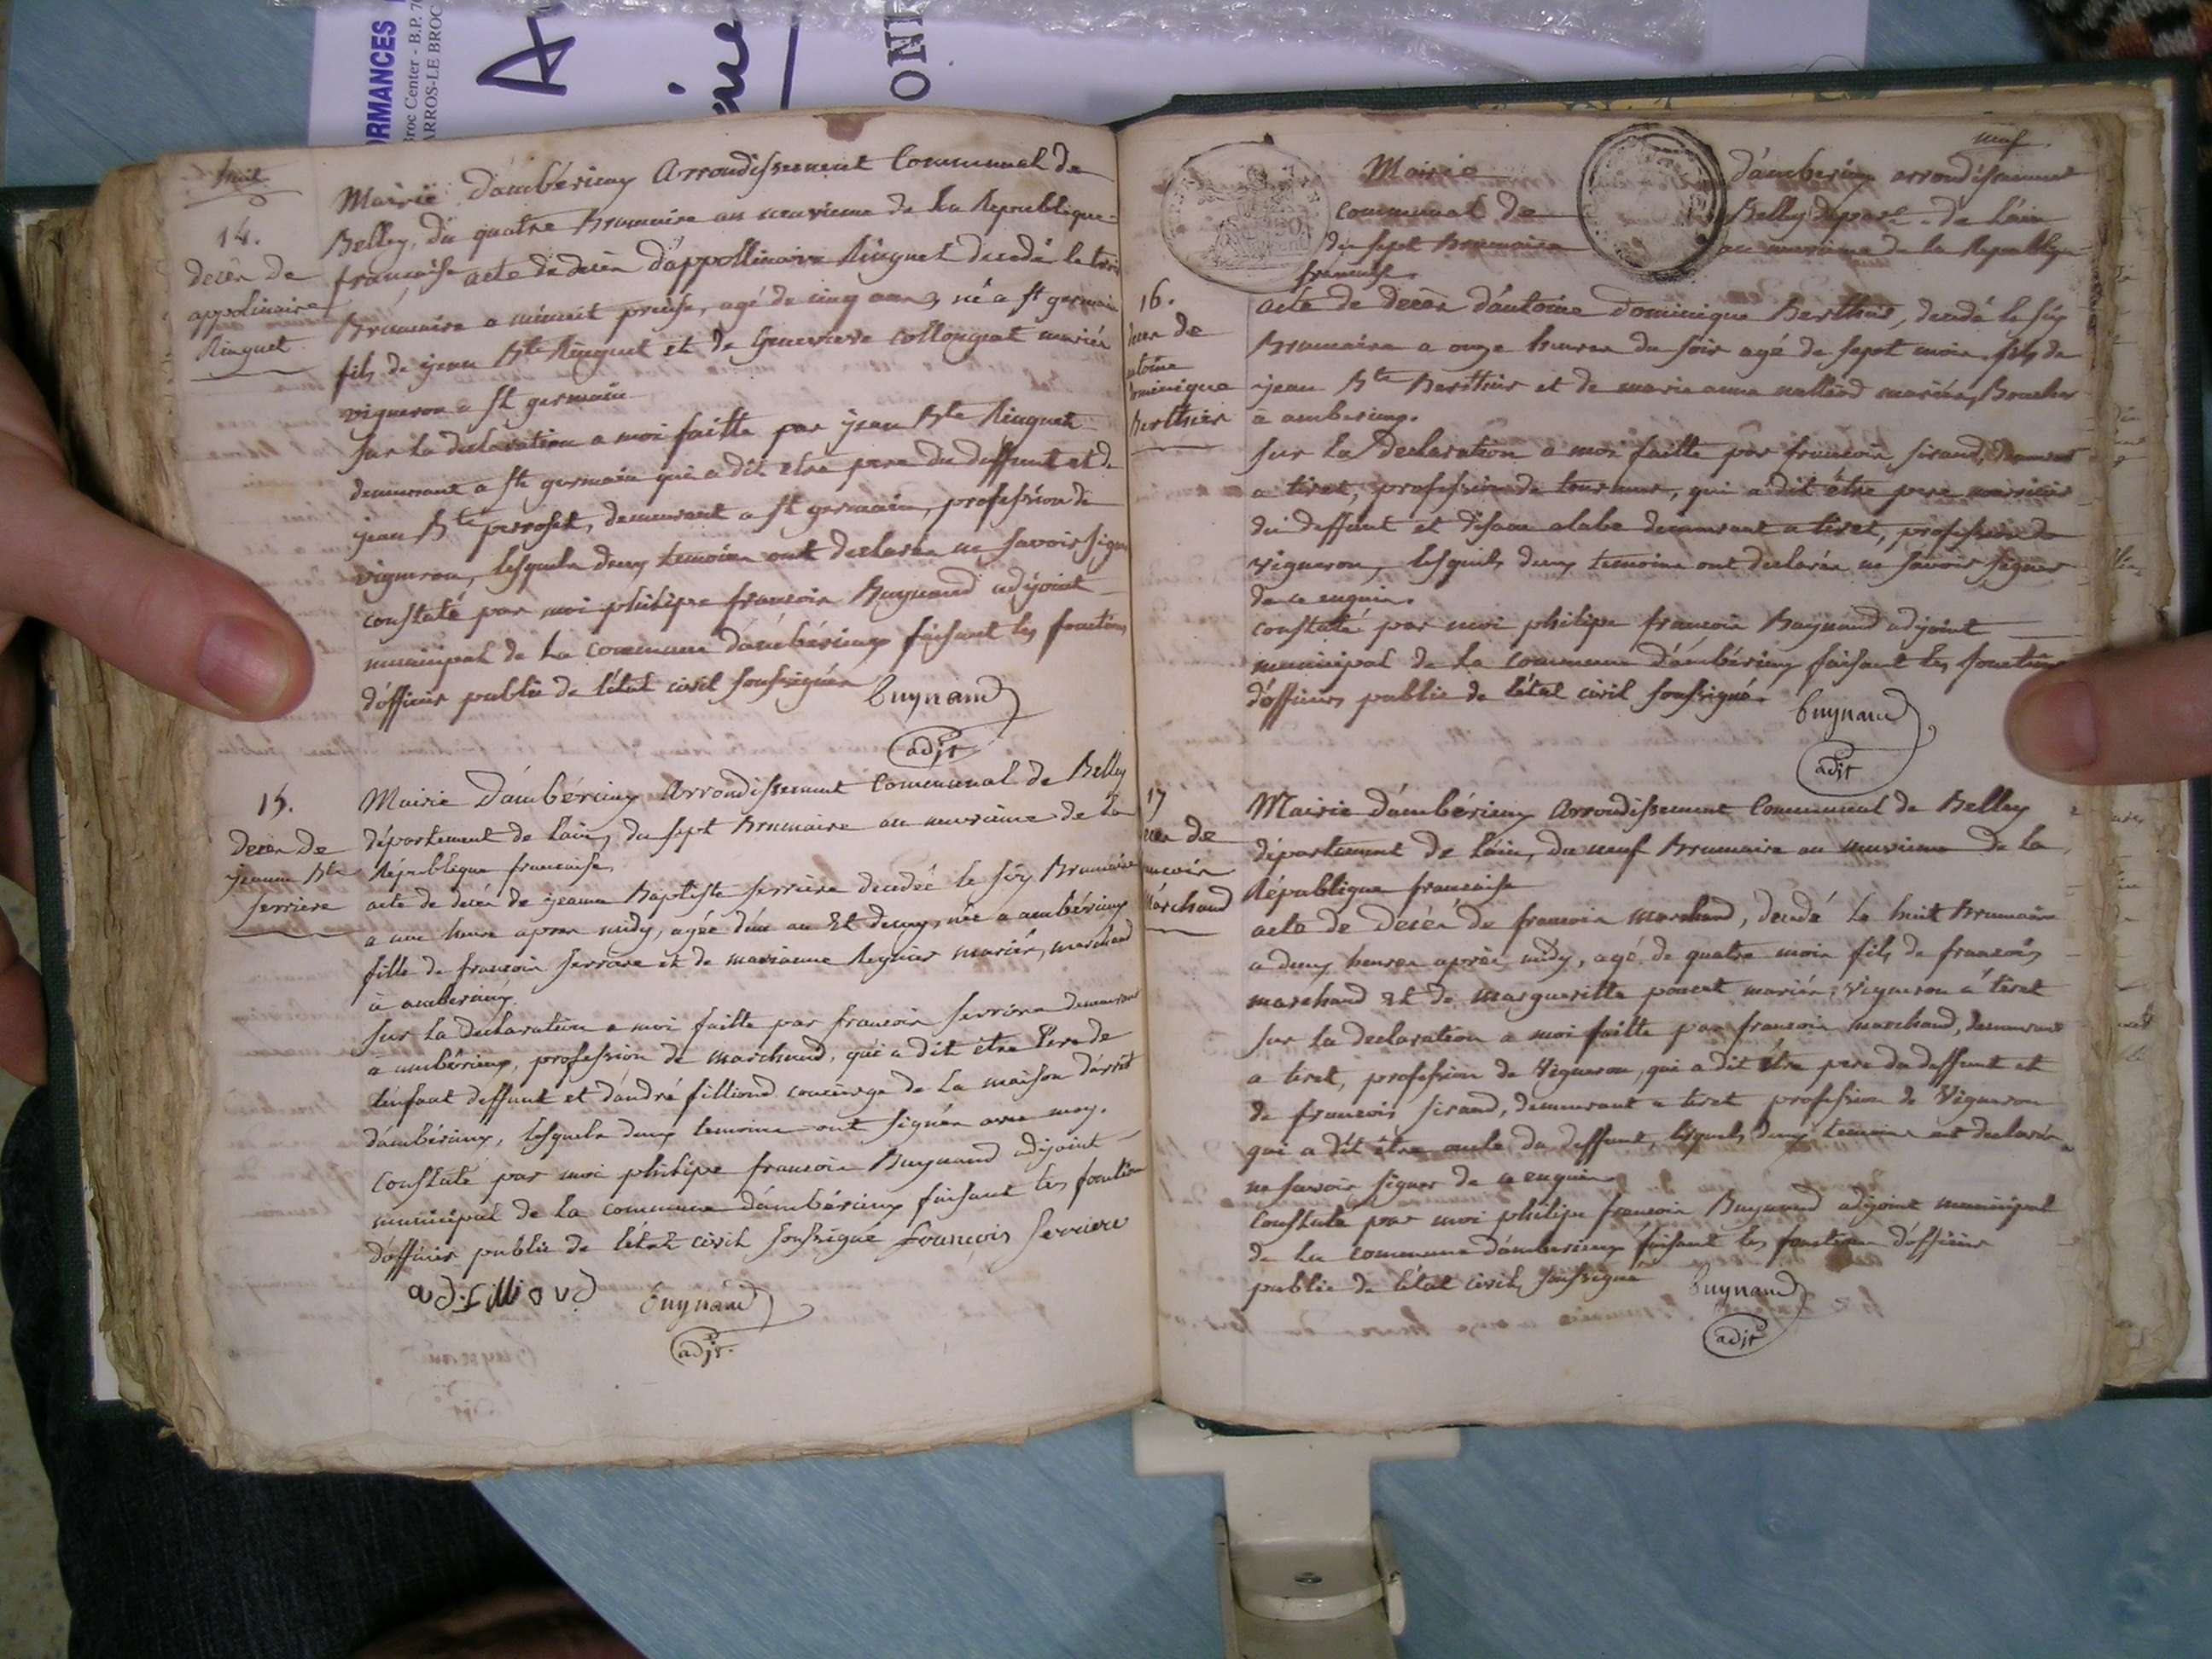 ORMANCES
Broc Center - B.P. 7
ARROS-LE BROC
huit
14.
decès de
appolinaire
Ringuet
Mairie d'ambérieux Arrondissement Communal de
Belley, du quatre Brumaire an neuvieme de la Republique
francaise acte de decès d'appollinaire Ringuet decedé le trois
Brumaire a minuit precise, agé de cinq ans, né a st germain
fils de jean Bte Ringuet et de Genevieve collonguat mariés
vigneron a st germain
Sur la declaration a moi faitte par jean Bte Ringuet
demeurant a st germain qui a dit etre pere du deffunt et de
jean Bte perroset, demeurant a st germain, profession de
vigneron, lesquels deux temoins ont declarés ne savoir signer
constaté par moi philipe francois Buynand adjoint
municipal de la commune d'ambérieux faisant les fonctions
d'officier public de l'état civil soussignés
buynand
adjt
15.
decès de
jeanne Bte
serriere
Mairie d'ambérieux Arrondissement Communal de Belley
département de l'ain, du sept Brumaire an neuvieme de la
République francaise
acte de decés de jeanne Baptiste serriere decedée le six Brumaire
a une heure apres midy, agée d'un an et demy, née a ambérieux
fille de francois serriere et de marianne Reynier mariés, marchand
à ambérieux
Sur la declaration a moi faitte par francois serriere demeurant
a ambérieux, profession de marchand, qui a dit être Pere de
l'enfant deffunt et d'andré filliond concierge de la maison d'arrêt
d'ambérieux, lesquels deux temoins ont signés avec moy.
Constaté par moi philipe francois Buynand adjoint
municipal de la commune d'ambérieux faisant les fonction
d'officier public de l'état civil soussigné françois serriere
ad. fillioud buynand
adjt.
neuf
Mairie d'ambérieux arrondissement
communal de Belley depart. de l'ain
du sept Brumaire an neuvieme de la Republique
francaise.
16.
decès de
antoine
dominique
Berthier
acte de decès d'antoine Dominique Berthier, decedé le six
Brumaire a onze heures du soir agé de sept mois, fils de
jean Bte Berthier et de marie anne mariés, Boucher
à amberieux.
Sur la declaration a moi faitte par francois sirand, demeurant
a tiret, profession de, qui a dit être pere nourricier
du deffunt et demeurant a tiret, profession de
vigneron, lesquels deux temoins ont declarés ne savoir signer
de ce enquis.
constaté par moi philipe francois Buynand adjoint
municipal de la commune d'ambérieux faisant les fonctions
d'officier public de l'état civil soussigné.
buynand
adjt
17
decès de
francois
Marchand
Mairie d'ambérieux Arrondissement Communal de Belley
département de l'ain, du neuf Brumaire an neuvieme de la
République francaise
acte de Decès de francois marchand, decedé le huit Brumaire
a deux heures après midy, agé de quatre mois fils de francois
marchand et de margueritte poncet mariés, vigneron à tiret
Sur la declaration a moi faitte par francois marchand, demeurant
a tiret, profession de Vigneron, qui a dit être pere du deffunt et
de francois sirand, demeurant a tiret profession de Vigneron
qui a dit être oncle du deffunt, lesquels deux temoins ont declarés
ne savoir signer de ce enquis
Constaté par moi philipe francois Buynand adjoint municipal
de la commune d'amberieux faisant les fonctions d'officier
public de l'état civil, soussigné buynand
adjt